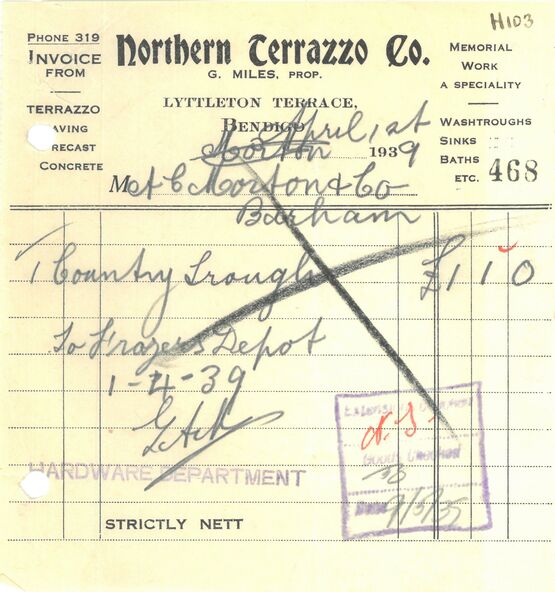 H103
PHONE 319
INVOICE
FROM
TERRAZZO
AVING
RECAST
CONCRETE
Northern Terrazzo Co.
G. MILES, PROP.
LYTTLETON TERRACE,
BENDIGO
April 1st
1939
MEMORIAL
WORK
A SPECIALITY
WASHTROUGHS
SINKS
BATHS
ETC.
468
M A C Morton & Co
Barham
1 Country Trough £1 1 0
To Frazers Depot
1-4-39
HARDWARE DEPARTMENT
Goods Checked
STRICTLY NETT